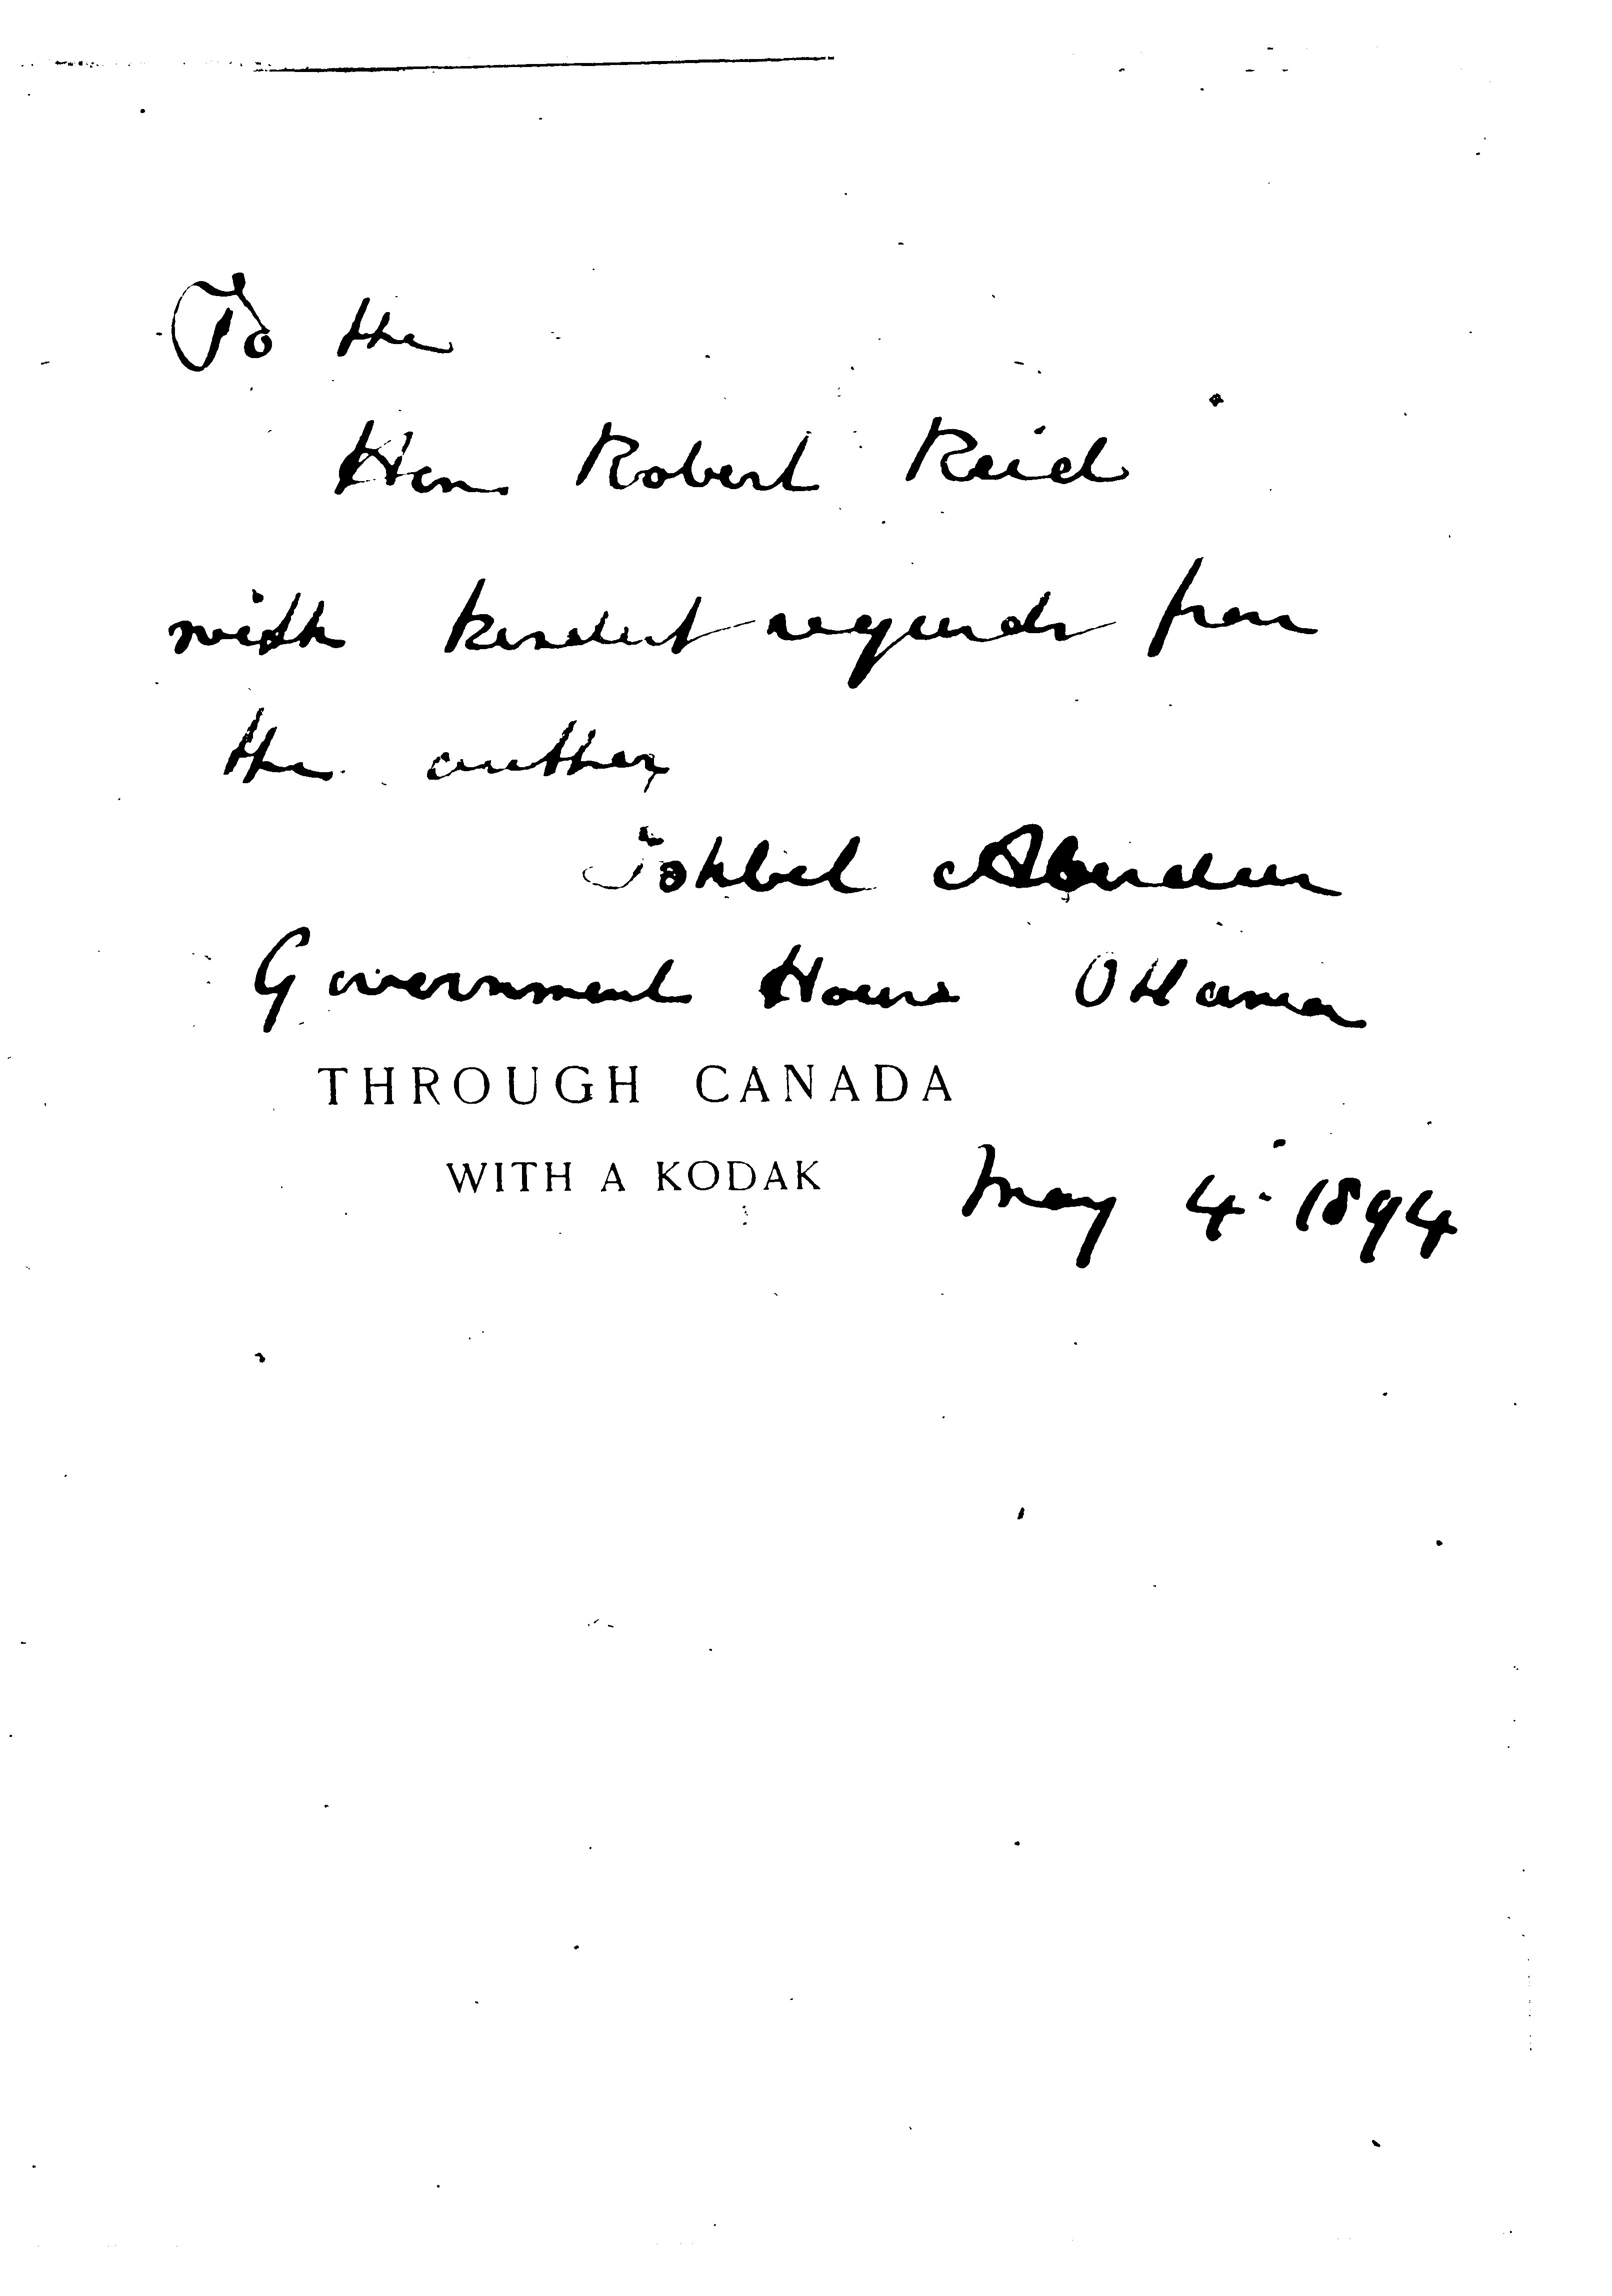 To the
Hon Robert Reid
with kindest regards from
the author
Ishbel Aberdeen
Government House Ottawa
THROUGH CANADA
WITH A KODAK
May 4. 1894